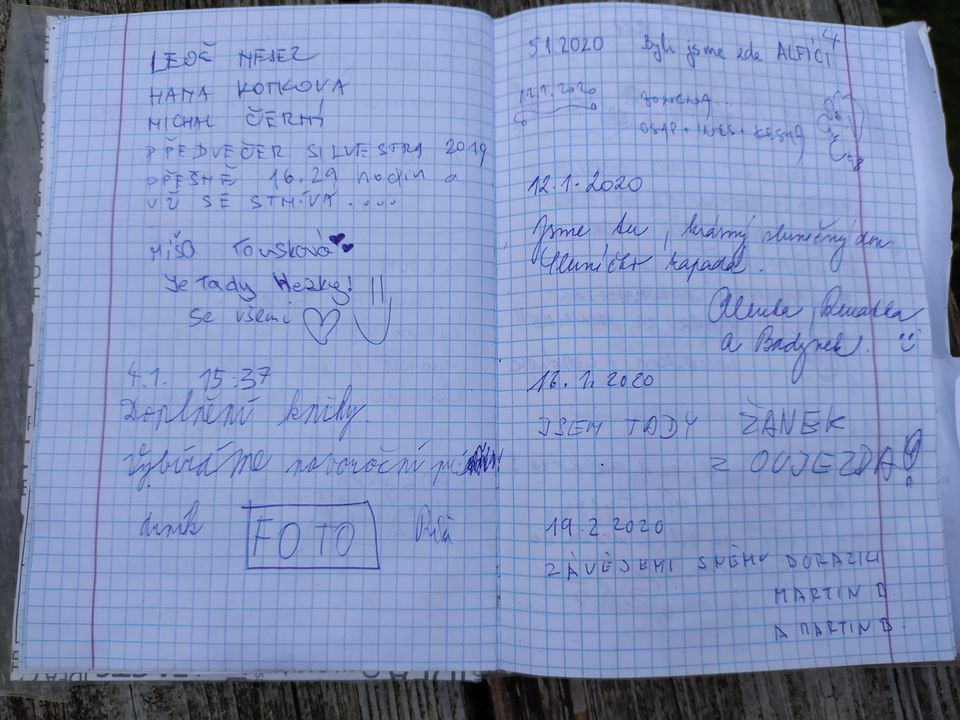 HANA KOTKOVA
MICHAL ČERNÝ
PŘEDVEČER SILVESTRA 2019
PŘESNĚ 16.29 hodin a
UŽ SE STMÍVÁ ....
MÍŠA Toušková
Je tady Hezky! !!
se všemi
4.1. 15:37
Doplnění knihy.
Vybíráme novoroční
FOTO
5.1.2020 Byli jsme zde ALFÍCI 4
12.1.2020
12.1.2020
Jsme tu, krásný slunečný den
Sluníčko zapadá.
Alenka,
a Badynek.
16.1.2020
JSEM TADY ŽANEK
Z OUJEZDA!
19.2.2020
ZÁVĚJEMI SNĚHU DORAZILI
MARTIN D.
A MARTIN B.